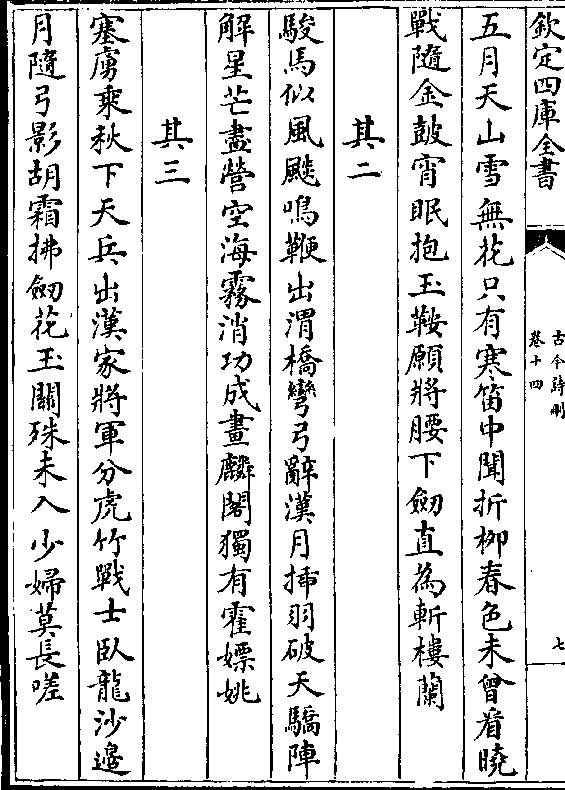 欽定四庫全書
古今詩刪
卷十四
七
五月天山雪無花只有寒笛中聞折柳春色未曾看曉
戰隨金鼓宵眠抱玉鞍願將腰下劒直為斬樓蘭
其二
駿馬似風飈鳴鞭出渭橋彎弓辭漢月揷羽破天驕陣
解星芒盡營空海霧消功成畫麟閣獨有霍嫖姚
其三
塞虜乘秋下天兵出漢家將軍分虎竹戰士臥龍沙邊
月隨弓影胡霜拂劒花玉關殊未入少婦莫長嗟